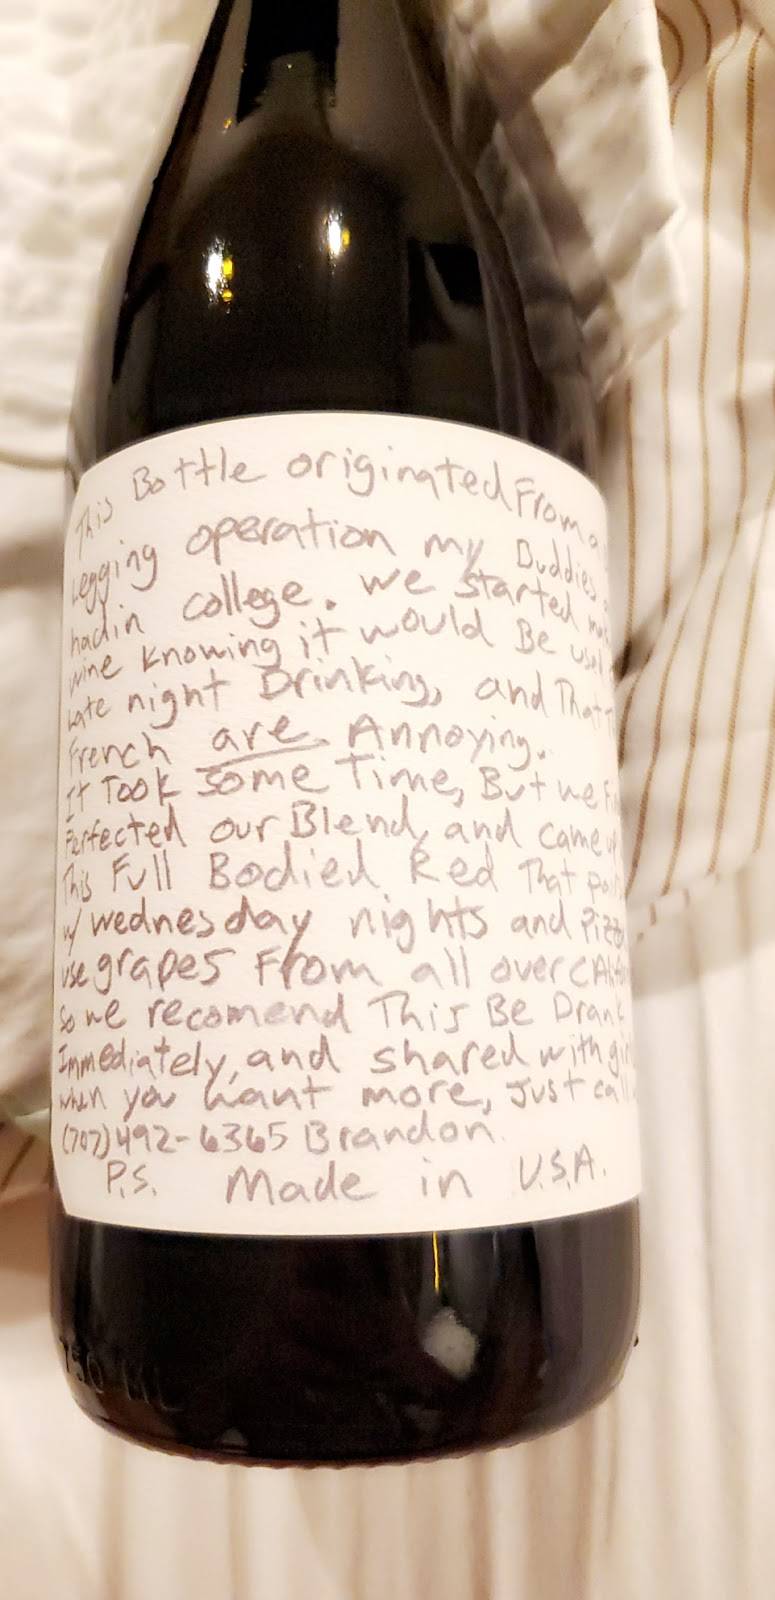 This Bottle originated From a
Legging operation my Buddies
hadin college. We started
wine knowing it would Be
Late night Drinking, and That
French are Annoying.
It Took some Time, But we
Perfected our Blend, and came
This Full Bodied Red That
w/ wednesday nights and
use grapes From all over
So we recomend This Be Drank
Immediately, and shared with
when you want more, Just
(707)492-6365 Brandon.
P.S. Made in U.S.A.
750 ML